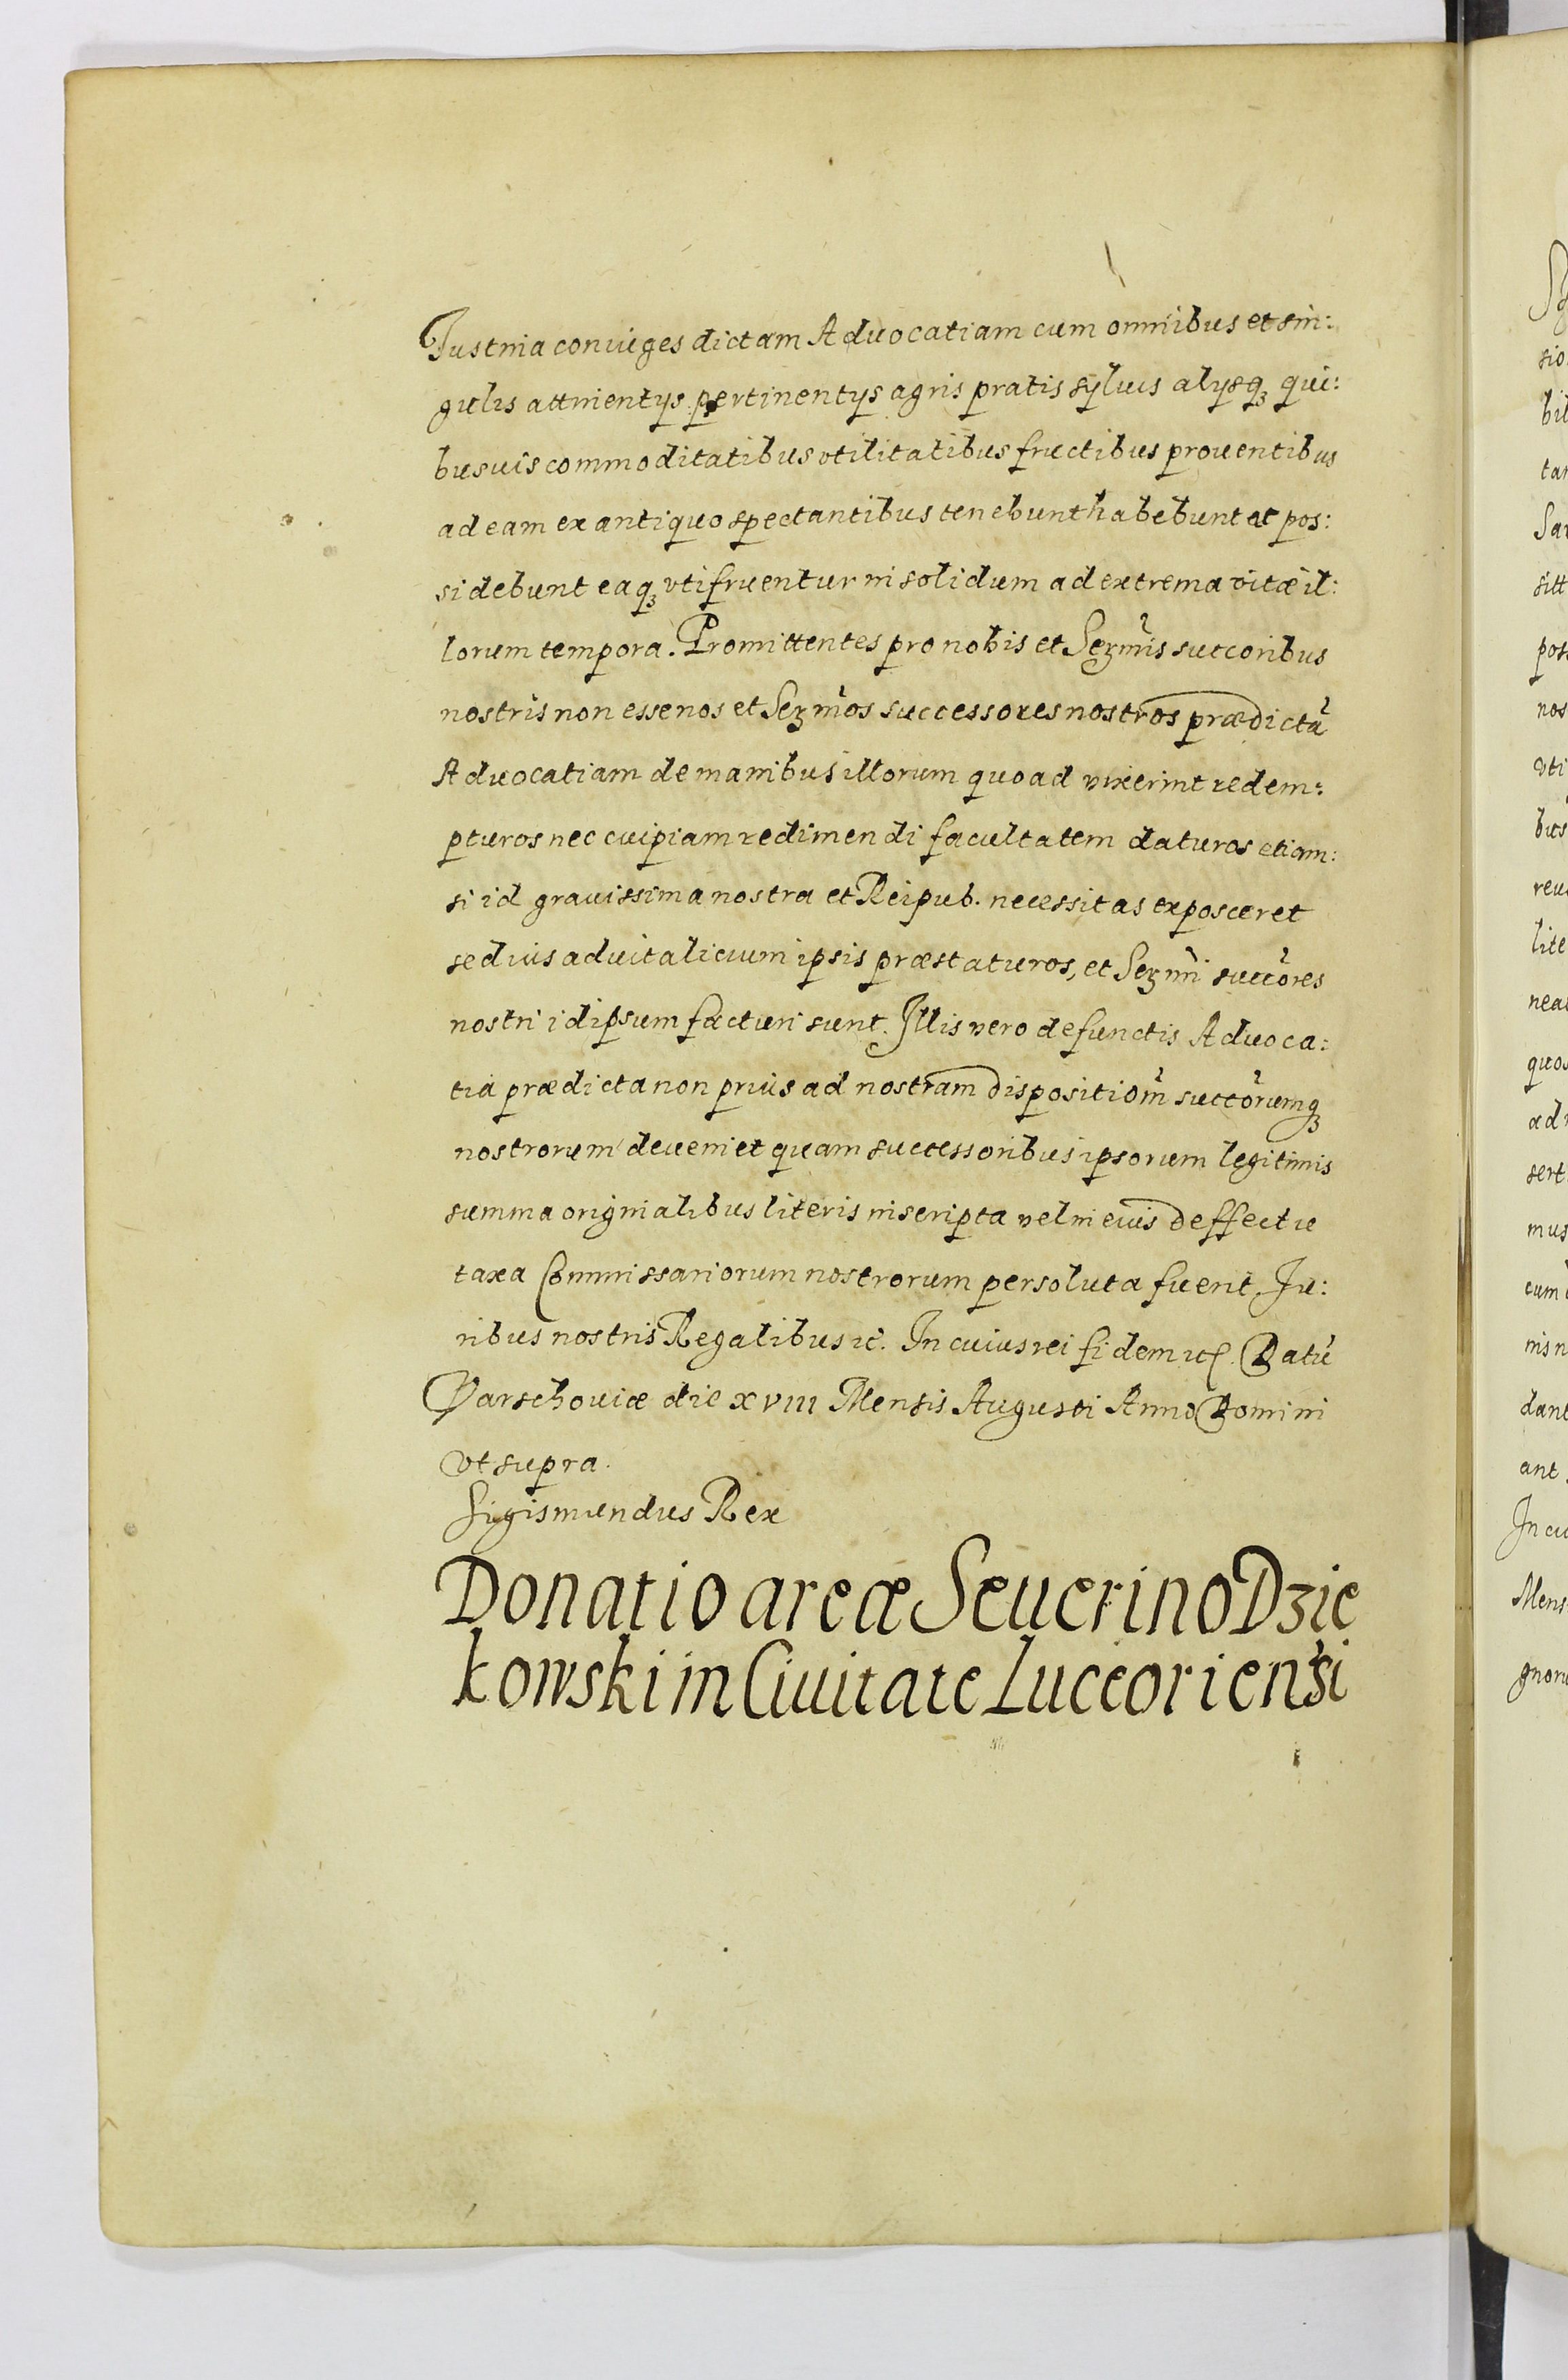 Iustina coniuges dictam Aduocatiam cum omnibus et sin:
gulis attinentijs pertinentijs agris pratis syluis alijsq3 qui:
busuis commoditatibus vtilitatibus fructibus prouentibus
ad eam ex antiquo spectantibus tenebunt habebunt et pos:
sidebunt eaq3 vtifruentur in solidum ad extrema vitæ il:
lorum tempora. Promittentes pro nobis et Serm̃is succoribus
nostris non esse nos et Serm̃os successores nostros prædictã
Aduocatiam de manibus illorum quoad vixerint redem:
pturos nec cuipiam redimendi facultatem daturos etiam:
si id grauissima nostra et Reipub. necessitas exposceret
sed ius aduitalicium ipsis præstaturos, et Serm̃i succõres
nostri idipsum facturi sunt. Illis vero defunctis Aduoca:
tia prædicta non prius ad nostram dispositiom̃ succõrumq3
nostrorum deueniet quam successoribus ipsorum legitimis
summa originalibus literis inscripta vel in eius deffectu
taxa Commissariorum nostrorum persoluta fuerit. Iu:
ribus nostris Regalibus zc. In cuius rei fidem zc. Datũ
Varschouiæ die xviii Mensis Augusti Anno Domini
vt supra.
Sigismundus Rex
Donatio areæ Seuerino Dzie
kowski in Ciuitate Luceoriensi
Sar
pos
nos
vti
lite
quos
ad
sert
mus
cum
dant
ant
In cu
Mens